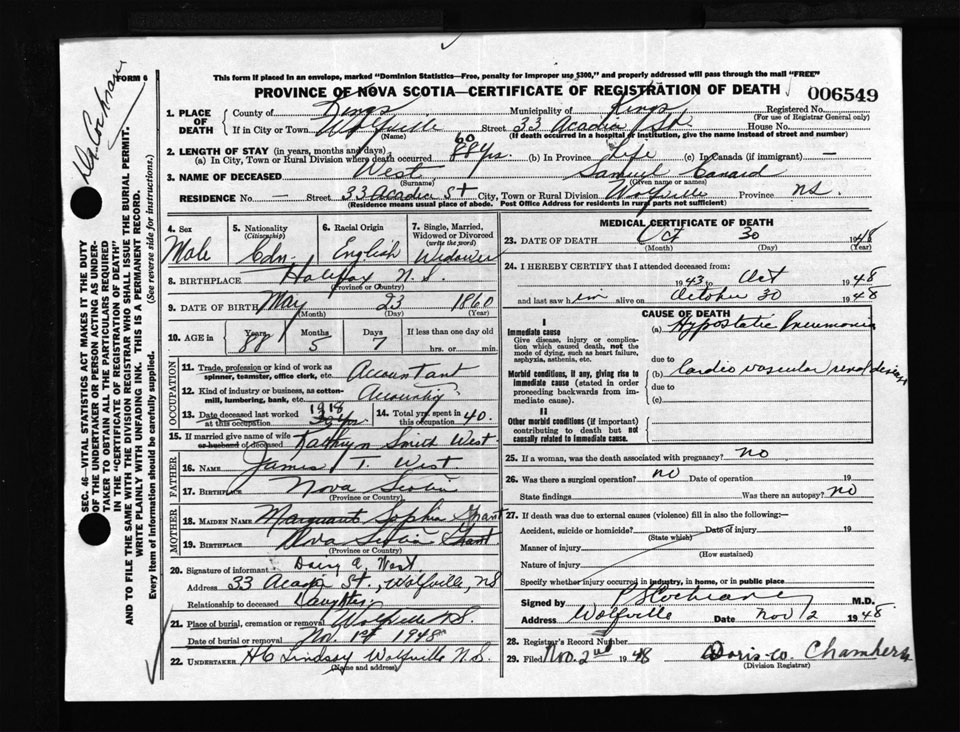 Dr. Cochrane
FORM 6
This form if placed in an envelope, marked "Dominion Statistics—Free, penalty for improper use $300," and properly addressed will pass through the mail "FREE"
PROVINCE OF NOVA SCOTIA—CERTIFICATE OF REGISTRATION OF DEATH
006549
1. PLACE OF DEATH
County of Kings Municipality of Kings Registered No.
(For use of Registrar General only)
If in City or Town Wolfville Street 33 Acadia St. House No.
(Name) (If death occurred in a hospital or institution, give the name instead of street and number)
2. LENGTH OF STAY (in years, months and days)
(a) In City, Town or Rural Division where death occurred 60 88 yrs. (b) In Province Life (c) In Canada (if immigrant) —
3. NAME OF DECEASED West Samuel Canard
(Surname) (Given name or names)
RESIDENCE No. — Street 33 Acadia St City, Town or Rural Division Wolfville Province N.S.
(Residence means usual place of abode. Post Office Address for residents in rural parts not sufficient)
4. Sex Male
5. Nationality (Citizenship) Cdn.
6. Racial Origin English
7. Single, Married, Widowed or Divorced (write the word) Widower
8. BIRTHPLACE Halifax N.S.
(Province or Country)
9. DATE OF BIRTH May 23 1860
(Month) (Day) (Year)
10. AGE in Years 88 Months 5 Days 7 If less than one day old
hrs. or min.
OCCUPATION
11. Trade, profession or kind of work as spinner, teamster, office clerk, etc. Accountant
12. Kind of industry or business, as cotton-mill, lumbering, bank, etc.
13. Date deceased last worked at this occupation 1918
14. Total yrs. spent in this occupation 40.
15. If married give name of wife or husband of deceased Kathryn Smith West
FATHER
16. NAME James T. West
17. BIRTHPLACE Nova Scotia
(Province or Country)
MOTHER
18. MAIDEN NAME Margaret Sophia Grant
19. BIRTHPLACE Nova Scotia Grant
(Province or Country)
20. Signature of informant West
Address 33 Acadia St., Wolfville, N.S
Relationship to deceased Daughter
21. Place of burial, cremation or removal Wolfville N.S.
Date of burial or removal Nov. 1st 1948
22. UNDERTAKER H C Lindsay Wolfville N.S.
(Name and address)
MEDICAL CERTIFICATE OF DEATH
23. DATE OF DEATH Oct 30 1948
(Month) (Day)
24. I HEREBY CERTIFY that I attended deceased from:
1943 to Oct 1948
and last saw him alive on October 30 1948
CAUSE OF DEATH
I
Immediate cause
Give disease, injury or complication which caused death, not the mode of dying, such as heart failure, asphyxia, asthenia, etc.
(a) Hypostatic Pneumonia
due to
Morbid conditions, if any, giving rise to immediate cause (stated in order proceeding backwards from immediate cause).
(b) Cardio vascular renal disease
due to
(c)
II
Other morbid conditions (if important) contributing to death but not causally related to immediate cause.
25. If a woman, was the death associated with pregnancy? no
26. Was there a surgical operation? no Date of operation 19
State findings Was there an autopsy? no
27. If death was due to external causes (violence) fill in also the following:—
Accident, suicide or homicide? Date of injury 19
(State which)
Manner of injury
(How sustained)
Nature of injury
Specify whether injury occurred in industry, in home, or in public place
Signed by P S Cochrane M.D.
Address Wolfville Date Nov 2 1948
28. Registrar's Record Number
29. Filed Nov. 2nd 1948 Doris W. Chambers
(Division Registrar)
SEC. 46—VITAL STATISTICS ACT MAKES IT THE DUTY
OF THE UNDERTAKER OR PERSON ACTING AS UNDER-
TAKER TO OBTAIN ALL THE PARTICULARS REQUIRED
IN THE "CERTIFICATE OF REGISTRATION OF DEATH"
AND TO FILE THE SAME WITH THE DIVISION REGISTRAR WHO SHALL ISSUE THE BURIAL PERMIT.
WRITE PLAINLY WITH UNFADING INK. THIS IS A PERMANENT RECORD.
Every item of information should be carefully supplied. (See reverse side for instructions.)